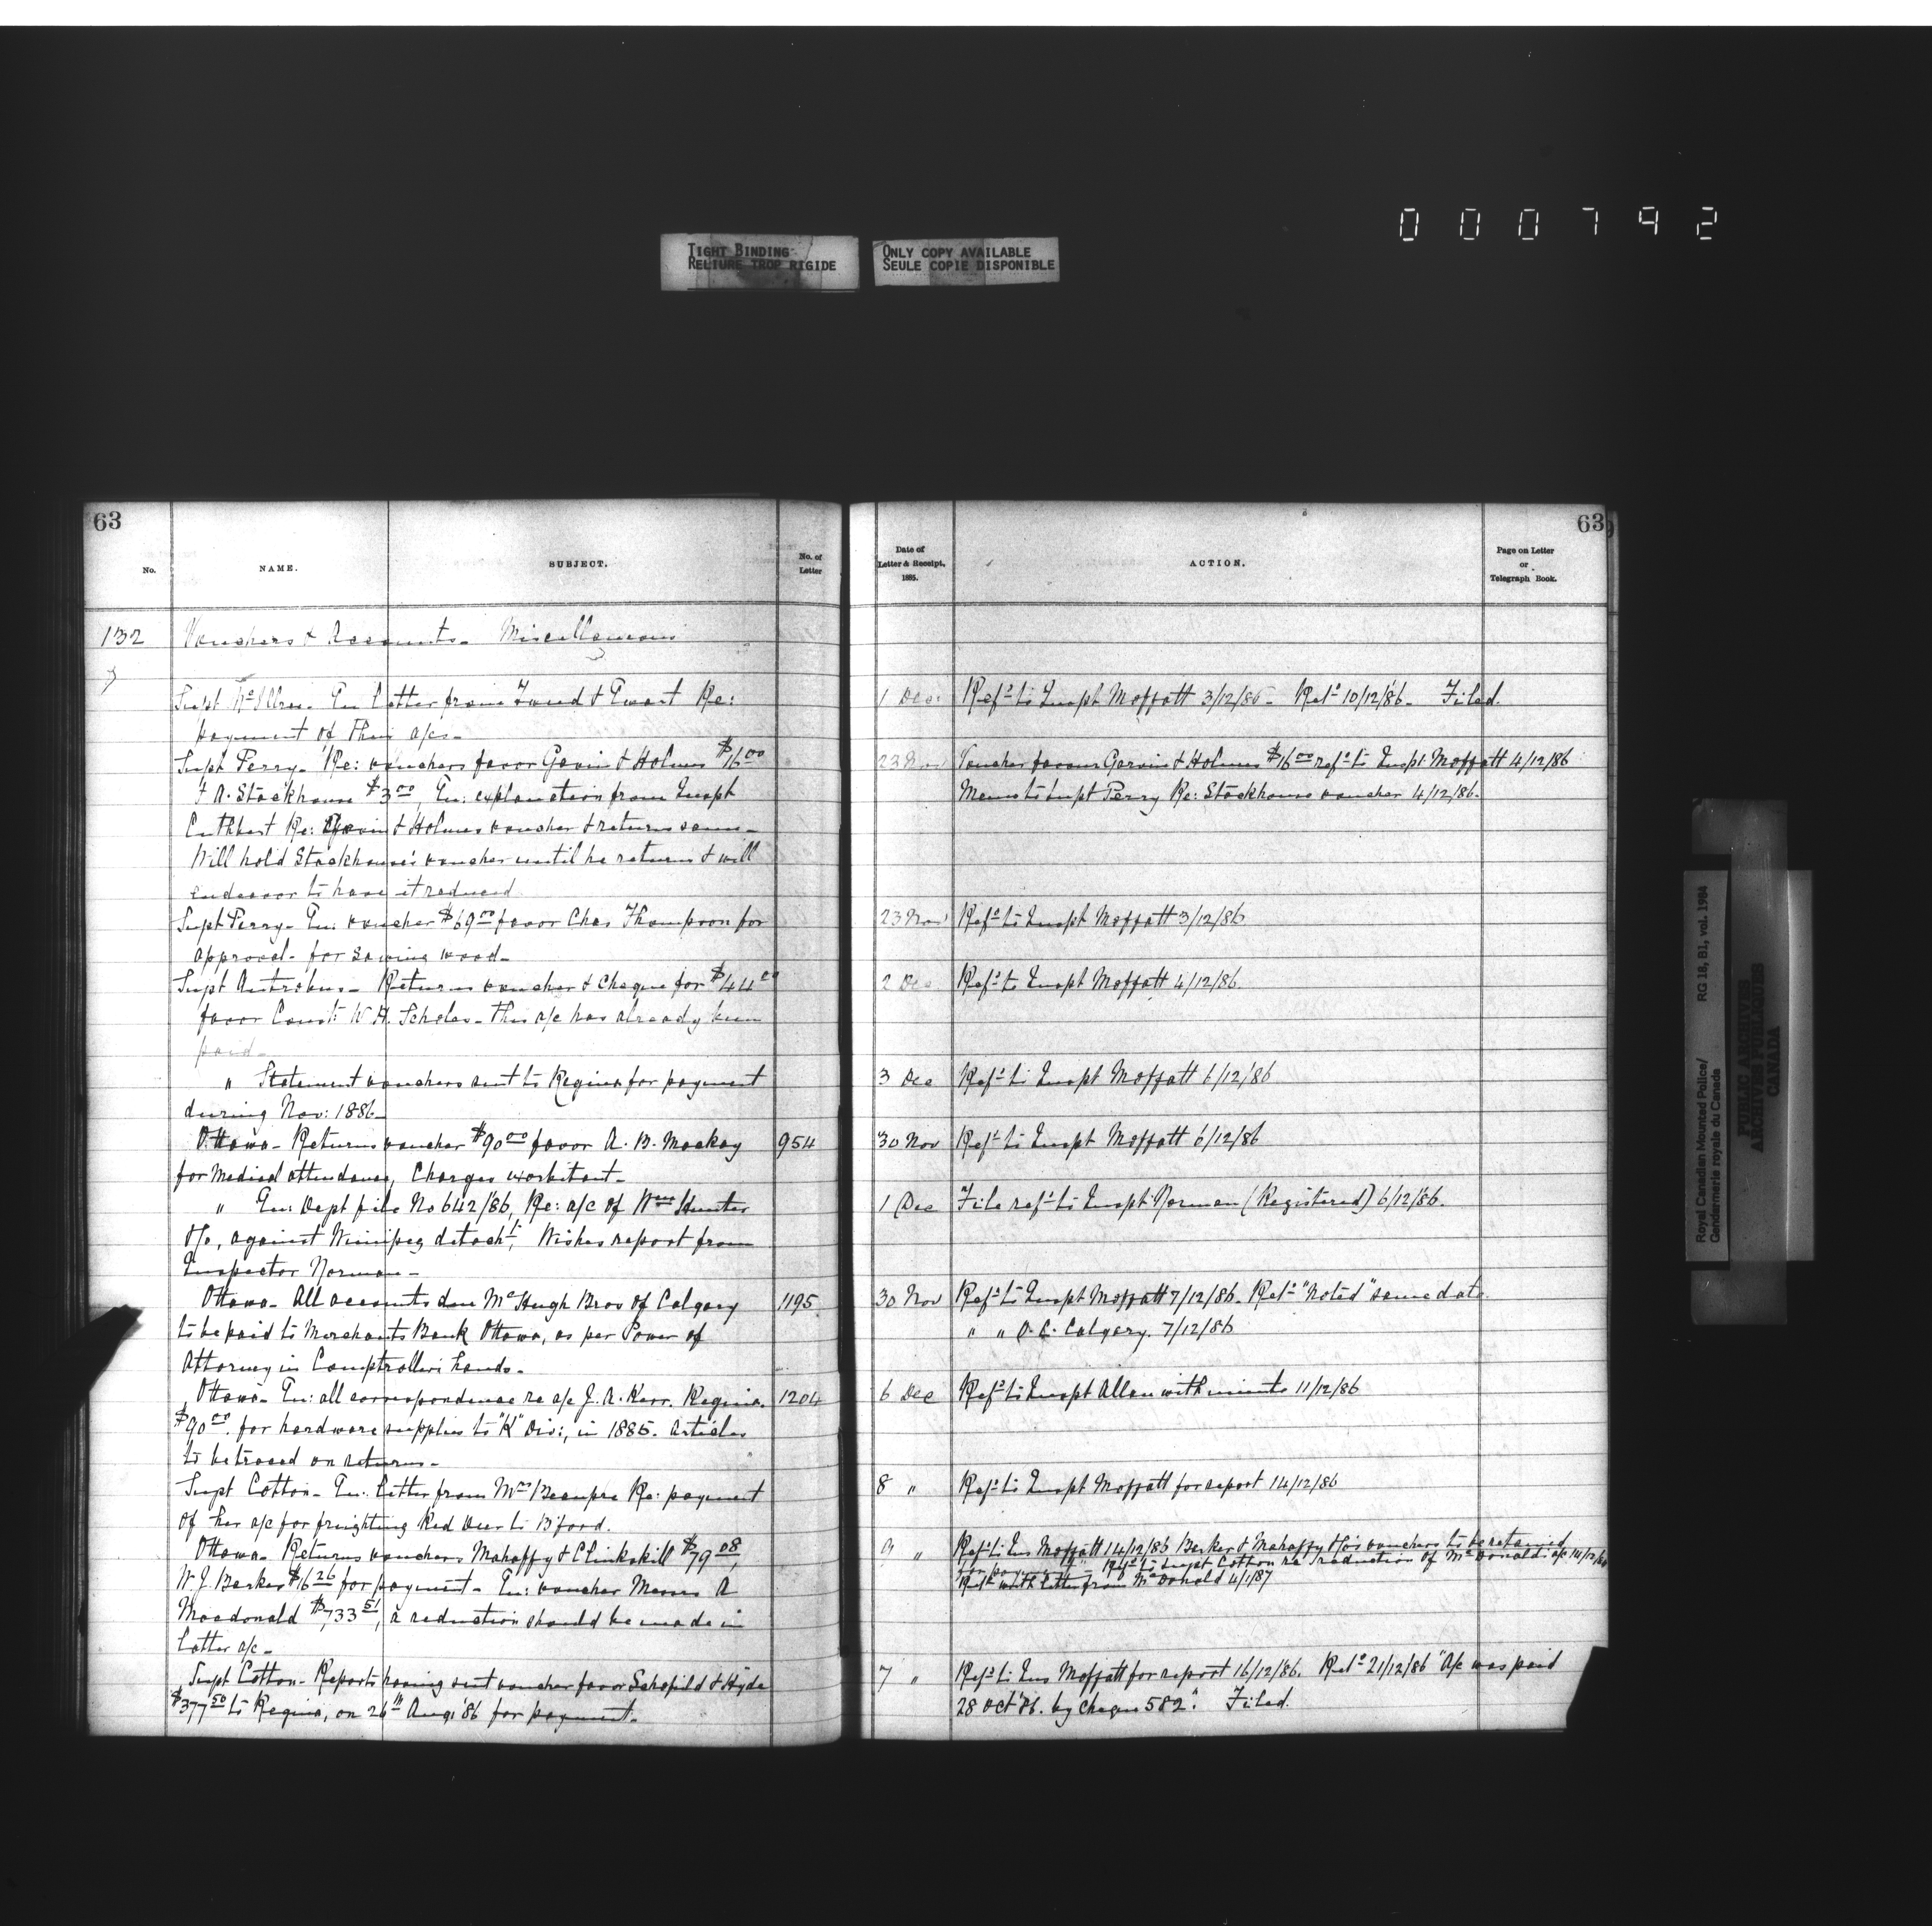 000792
TIGHT BINDING
RELIURE TROP RIGIDE
ONLY COPY AVAILABLE
SEULE COPIE DISPONIBLE
63
No.
NAME.
SUBJECT.
No. of
Letter
132 Vouchers & Accounts - Miscellaneous
Supt En Letter from & Ewart Re:
payment of their a/cs -
Supt Perry - Re: vouchers favor Gavin & Holmes $16.00
F A. Stockhouse $3.00, En: explanation from Inspt
Cuthbert Re: Gavin & Holmes voucher & returns same -
Will hold Stockhouse's voucher until he returns & will
endeavor to have it reduced
Supt Perry - En: voucher $69.00 favor Chas Thompson for
approval - for sawing wood -
Supt Antrobus - Returns voucher & Cheque for $44.00
favor Const: W. H. Scholes - This a/c has already been
paid -
" Statement vouchers sent to Regina for payment
during Nov: 1886 -
Ottawa - Returns voucher $90.00 favor A. B. Mackay 954
for Medical attendance, Charges exorbitant -
" En: Dept file No 642/86, Re: a/c of Wm Hunter
against Winnipeg detacht, Wishes report from
Inspector Norman -
Ottawa - All accounts due McHugh Bros of Calgary 1195
to be paid to Merchants Bank Ottawa, as per Power of
Attorney in Comptrollers hands -
Ottawa - En: all correspondence re a/c J. A. Kerr. Regina. 1204
$90.00. for hardware supplies to "K" Div:, in 1885. Articles
to be traced on returns -
Supt Cotton - En: letter from Mrs Beaupre Re: payment
of her a/c for freighting Red Deer to B'ford.
Ottawa - Returns vouchers Mahaffy & Clinkskill $79.08,
W. J. Barker $16.26 for payment - En: voucher Messrs A
Macdonald $733.51, a reduction should be made in
latter a/c -
Supt Cotton - Reports having sent voucher favor Schofield & Hyde
$377.50 to Regina, on 26th Aug: '86 for payment -
63
Date of
Letter & Receipt,
1885.
ACTION.
Page on Letter
or
Telegraph Book.
1 Dec: Refd to Inspt Moffatt 3/12/86 - Retd 10/12/86 - Filed.
23 Nov Voucher favour Garvin & Holmes $16.00 refd to Inspt: Moffatt 4/12/86
Memo to Supt Perry Re: Stockhouse voucher 4/12/86 -
23 Nov Refd to Inspt Moffatt 3/12/86
2 Dec Refd to Inspt Moffatt 4/12/86
3 Dec Refd to Inspt Moffatt 6/12/86
30 Nov Refd to Inspt Moffatt 6/12/86
1 Dec File refd to Inspt Norman (Registered) 6/12/86.
30 Nov Refd to Inspt Moffatt 7/12/86. Retd "Noted" same date.
" " O. C. Calgary. 7/12/86
6 Dec Refd to Inspt Allan with minute 11/12/86
8 " Refd to Inspt Moffatt for report 14/12/86
9 " Refd to Ins Moffatt 14/12/86 Barker & Mahaffy & Co's vouchers to be retained
for payment - Refd to Supt Cotton re reduction of McDonald's a/c 14/12/86
Retd with letter from McDonald 4/1/87
7 " Refd to Ins Moffatt for report 16/12/86. Retd 21/12/86 "A/c was paid
28 Oct '86. by cheque 582". Filed.
Royal Canadian Mounted Police/
Gendarmerie royale du Canada
RG 18, B1, vol. 1984
PUBLIC ARCHIVES
ARCHIVES PUBLIQUES
CANADA